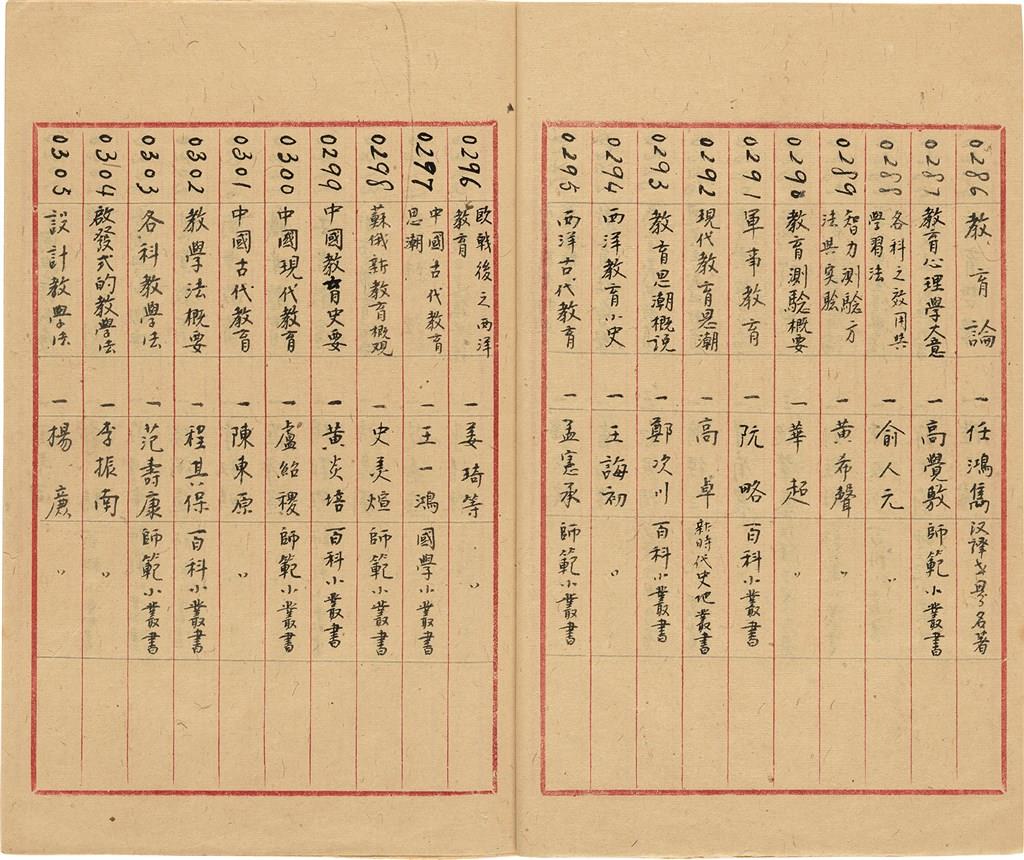 0286 教育論 一 任鴻雋 汉譯世界名著
0287 教育心理學大意 一 高覺敷 師範小叢書
0288 各科之效用與學習法 一 俞人元 〃
0289 智力測驗方法與实驗 一 黄希聲 〃
0290 教育測驗概要 一 華超 〃
0291 軍事教育 一 阮略 百科小叢書
0292 現代教育思潮 一 高卓 新時代史地叢書
0293 教育思潮概説 一 鄭次川 百科小叢書
0294 西洋教育小史 一 王誨初 〃
0295 西洋古代教育 一 孟憲承 師範小叢書
0296 欧戰後之西洋教育 一 姜琦等 〃
0297 中國古代教育思潮 一 王一鴻 國學小叢書
0298 蘇俄新教育概观 一 史美煊 師範小叢書
0299 中國教育史要 一 黄炎培 百科小叢書
0300 中國現代教育 一 盧紹稷 師範小叢書
0301 中國古代教育 一 陳東原 〃
0302 教學法概要 一 程其保 百科小叢書
0303 各科教學法 一 范壽康 師範小叢書
0304 啟發式的教學法 一 李振南 〃
0305 設計教學法 一 楊廉 〃